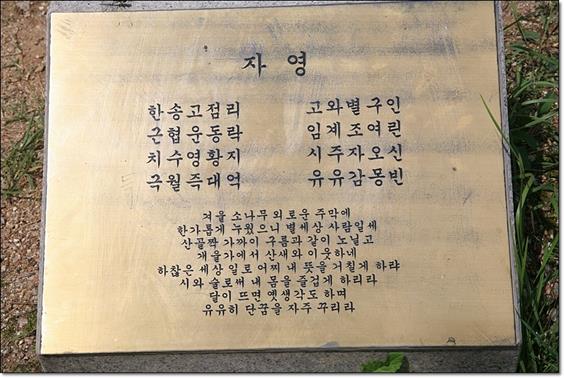 자영
한송고점리 고와별구인
근협운동락 임계조여린
치수영황지 시주자오신
극월즉대억 유유감몽빈
겨울 소나무 외로운 주막에
한가롭게 누웠으니 별세상 사람일세
산골짝 가까이 구름과 같이 노닐고
개울가에서 산새와 이웃하네
하찮은 세상 일로 어찌 내 뜻을 거칠게 하랴
시와 술로써 내 몸을 즐겁게 하리라
달이 뜨면 옛생각도 하며
유유히 단꿈을 자주 꾸리라